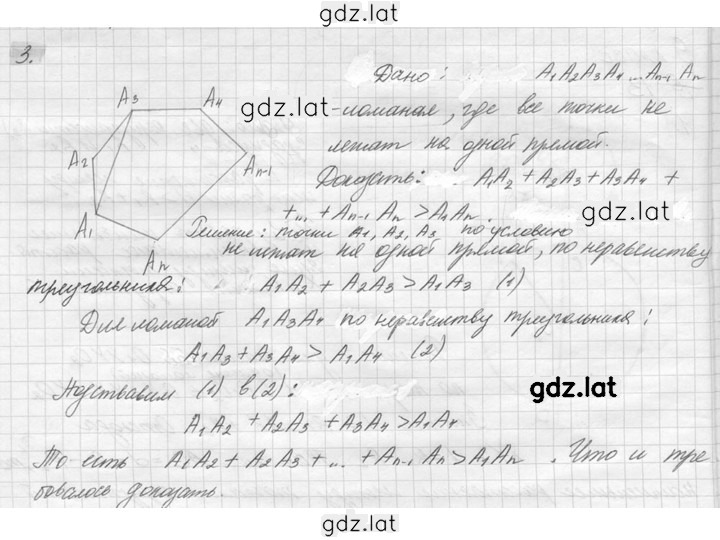 gdz.lat
3.
Дано: A1A2A3A4...An-1 An
A3 A4
gdz.lat
-ломаная, где все точки не
лежат на одной прямой.
A2
An-1
Доказать: A1A2 + A2A3 + A3A4 +
A1
+ ... + An-1 An > A1An.
gdz.lat
Решение: точки A1, A2, A3 по условию
An
не лежат на одной прямой, по неравенству
треугольника: A1A2 + A2A3 > A1A3 (1)
Для ломаной A1A3A4 по неравенству треугольника:
A1A3 + A3A4 > A1A4 (2)
Подставим (1) в (2):
gdz.lat
A1A2 + A2A3 + A3A4 > A1A4
То есть A1A2 + A2A3 + ... + An-1 An > A1An. Что и тре
бовалось доказать.
gdz.lat